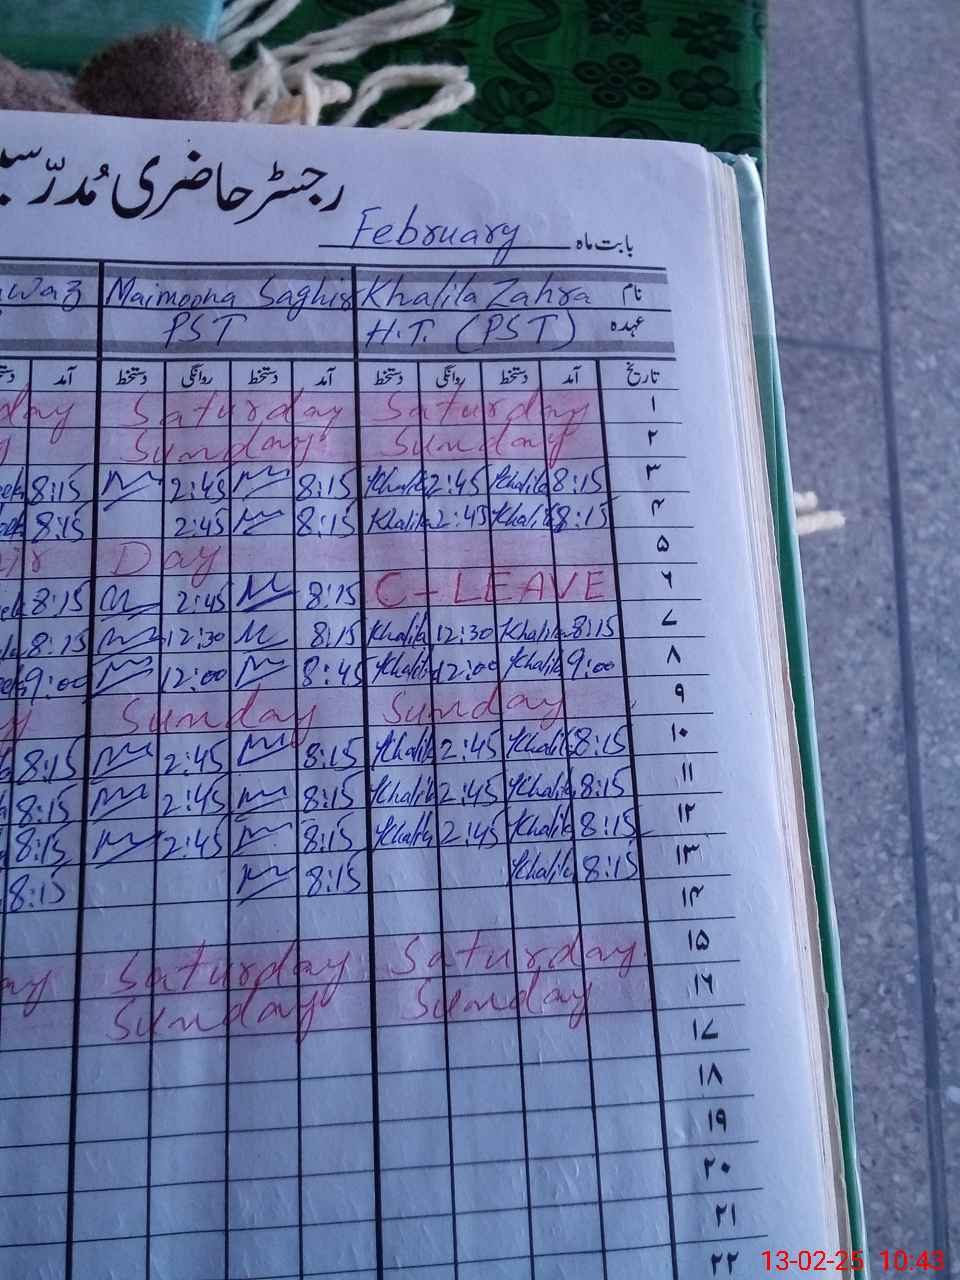 رجسٹر حاضری مُدرّسین
بابت ماہ February
نام Khalila Zahra Maimoona Saghir
عہدہ H.T. (PST) PST
تاریخ آمد دستخط روانگی دستخط آمد دستخط روانگی دستخط آمد
۱ Saturday Saturday
۲ Sunday Sunday
۳ 8:15 Khalila 2:45 Khalila 8:15 2:45 8:15
۴ 8:15 Khalila 2:45 Khalila 8:15 2:45 8:15
۵ Day
۶ C-LEAVE 8:15 2:45 8:15
۷ 8:15 Khalila 12:30 Khalila 8:15 12:30 8:15
۸ 9:00 Khalila 12:00 Khalila 8:45 12:00 9:00
۹ Sunday Sunday
۱۰ 8:15 Khalila 2:45 Khalila 8:15 2:45 8:15
۱۱ 8:15 Khalila 2:45 Khalila 8:15 2:45 8:15
۱۲ 8:15 Khalila 2:45 Khalila 8:15 2:45 8:15
۱۳ 8:15 Khalila 8:15 8:15
۱۴
۱۵ Saturday Saturday
۱۶ Sunday Sunday
۱۷
۱۸
۱۹
۲۰
۲۱
۲۲
13-02-25 10:43